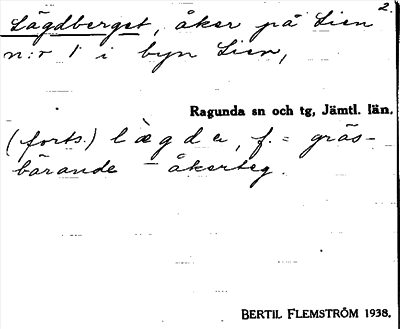 2.
Lägdberget, åker på Lien
n:r 1 i byn Lien,
Ragunda sn och tg, Jämtl. län.
(forts.) lægda, f. = gräs-
bärande åkerteg.
BERTIL FLEMSTRÖM 1938.